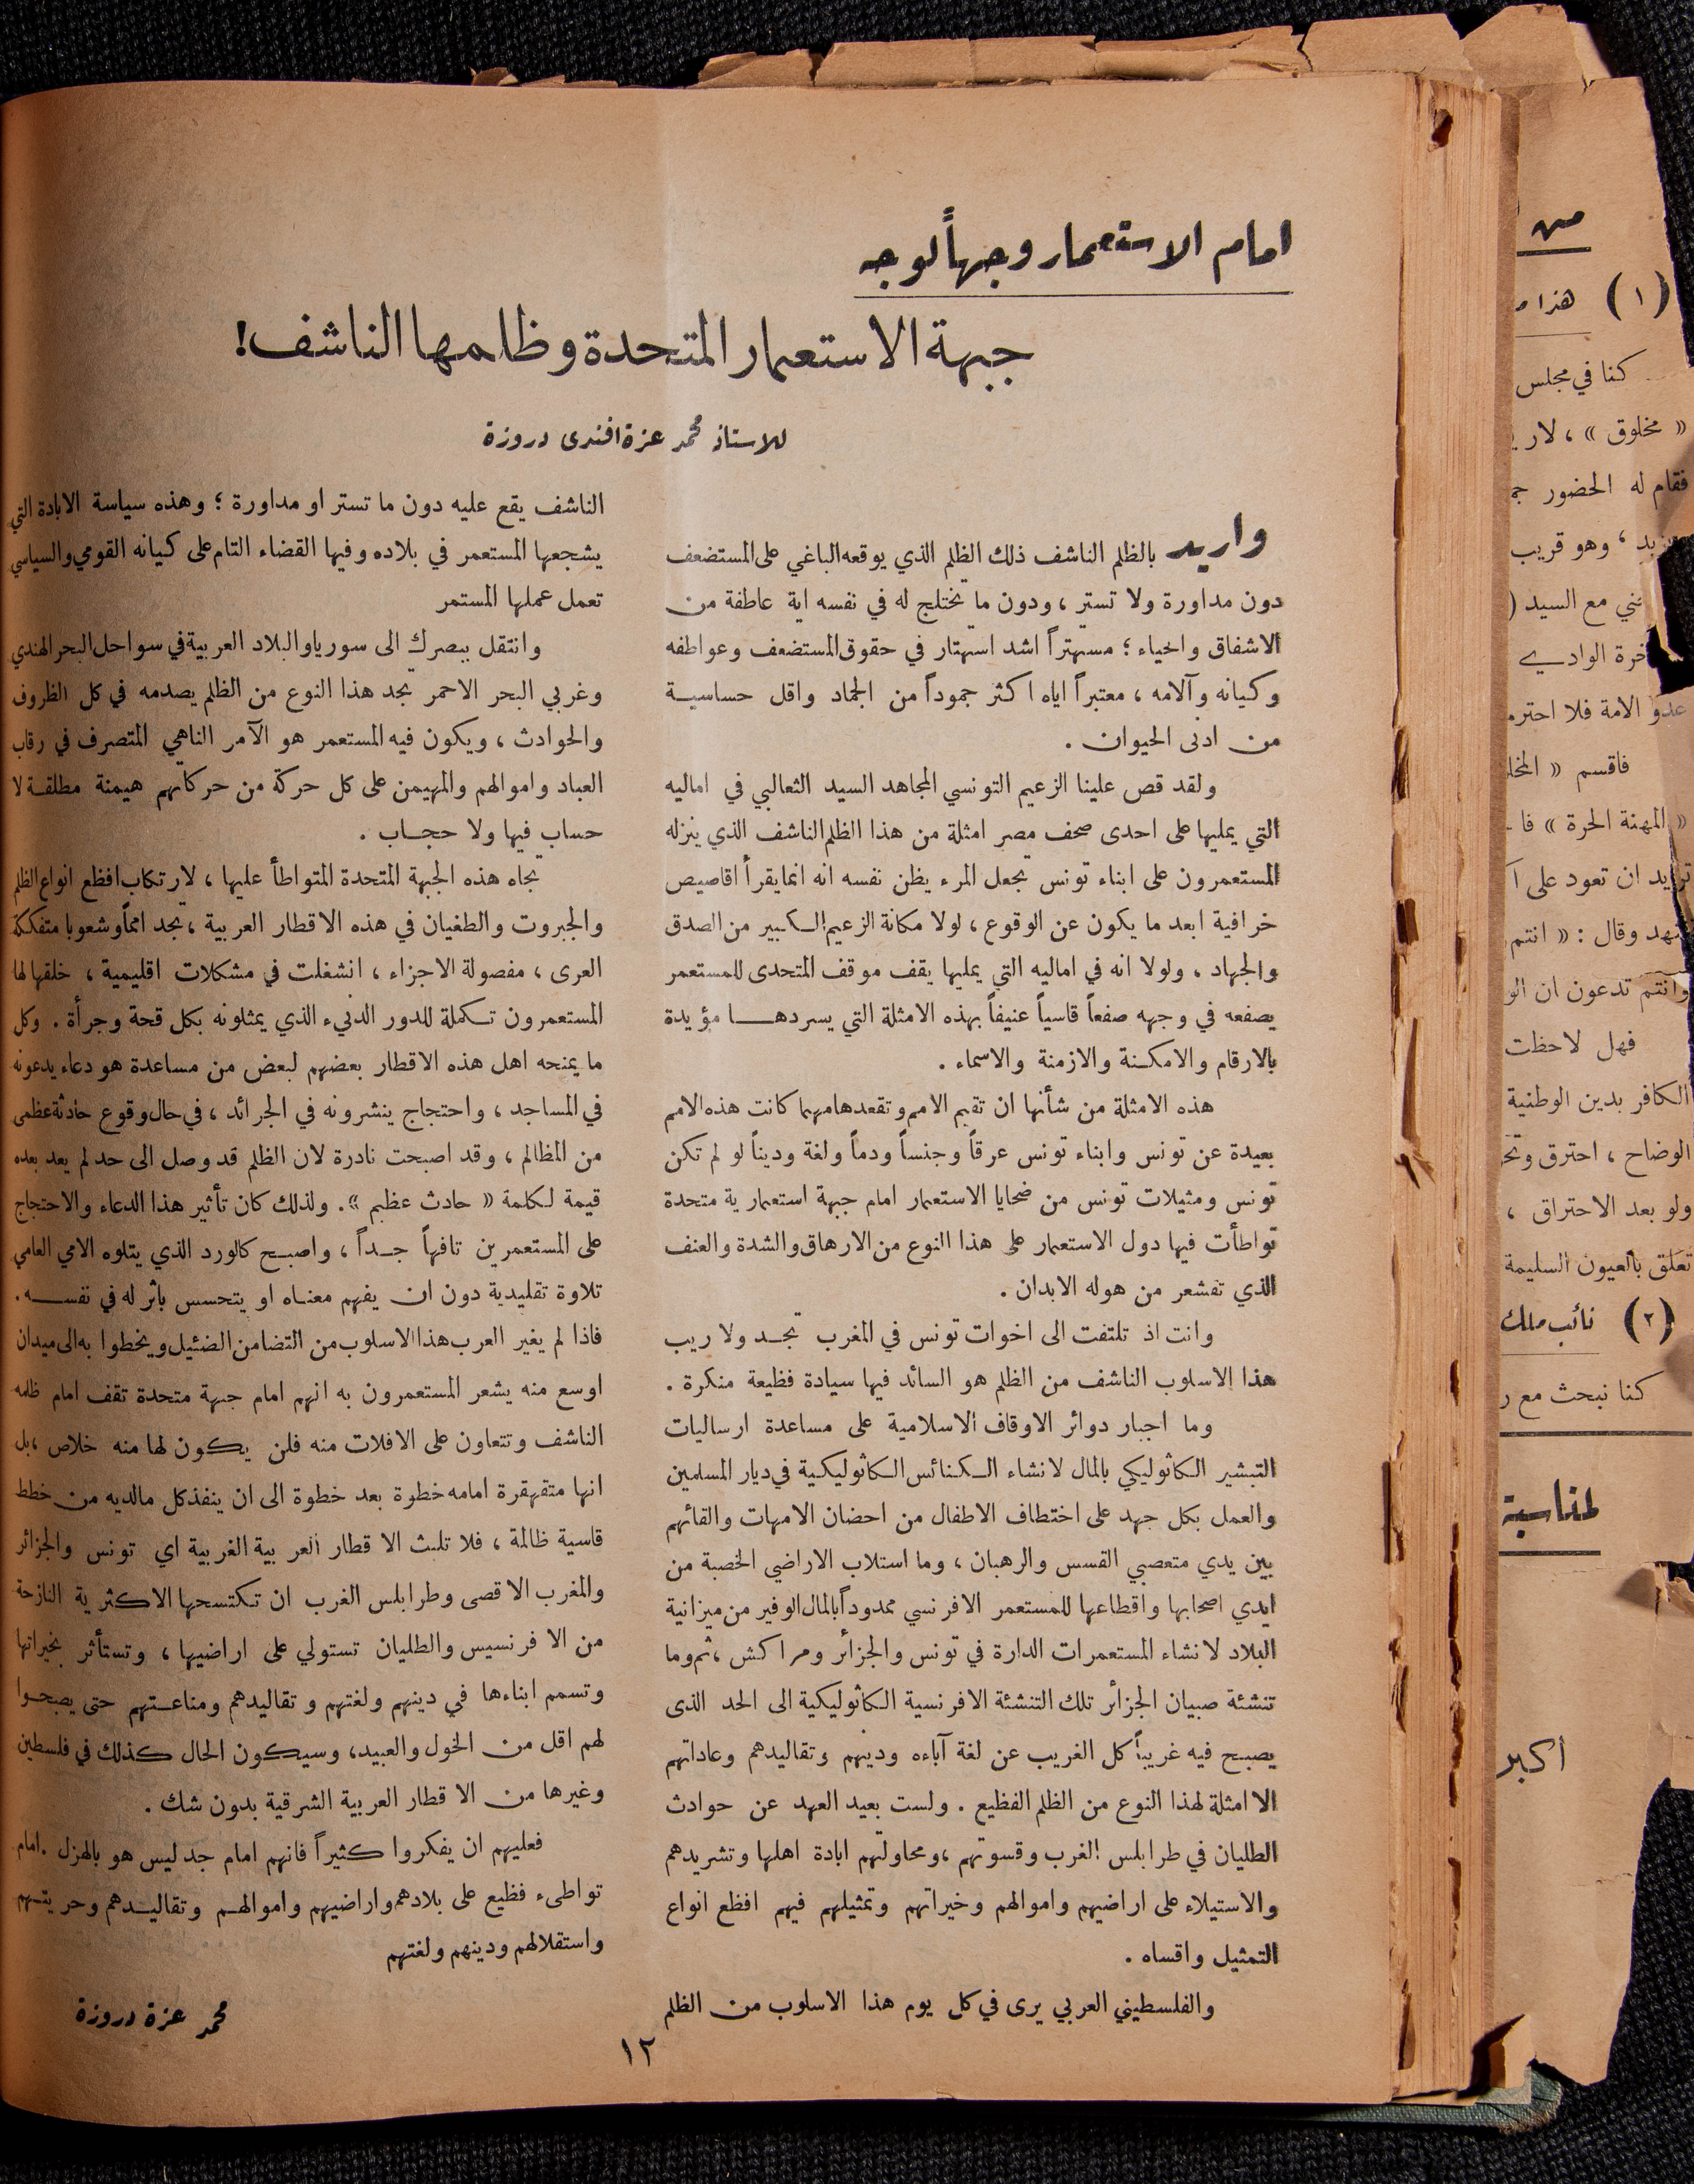 امام الاستعمار وجهاً لوجه
جبهة الاستعمار المتحدة وظلمها الناشف!
للاستاذ محمد عزة افندى دروزة
واريد بالظلم الناشف ذلك الظلم الذي يوقعه الباغي على المستضعف
دون مداورة ولا تستر ، ودون ما تختلج له في نفسه اية عاطفة من
الاشفاق والحياء ؛ مستهتراً اشد استهتار في حقوق المستضعف وعواطفه
وكيانه وآلامه ، معتبراً اياه اكثر جموداً من الجماد واقل حساسية
من ادنى الحيوان .
ولقد قص علينا الزعيم التونسي المجاهد السيد الثعالبي في اماليه
التي يمليها على احدى صحف مصر امثلة من هذا الظلم الناشف الذي ينزله
المستعمرون على ابناء تونس تجعل المرء يظن نفسه انه انما يقرأ اقاصيص
خرافية ابعد ما يكون عن الوقوع ، لولا مكانة الزعيم الكبير من الصدق
والجهاد ، ولولا انه في اماليه التي يمليها يقف موقف المتحدى للمستعمر
يصفعه في وجهه صفعاً قاسياً عنيفاً بهذه الامثلة التي يسردها مؤيدة
بالارقام والامكنة والازمنة والاسماء .
هذه الامثلة من شأنها ان تقيم الامم وتقعدها مهما كانت هذه الامم
بعيدة عن تونس وابناء تونس عرقاً وجنساً ودماً ولغة وديناً لو لم تكن
تونس ومثيلات تونس من ضحايا الاستعمار امام جبهة استعمارية متحدة
تواطأت فيها دول الاستعمار على هذا النوع من الارهاق والشدة والعنف
الذي تقشعر من هوله الابدان .
وانت اذ تلتفت الى اخوات تونس في المغرب تجد ولا ريب
هذا الاسلوب الناشف من الظلم هو السائد فيها سيادة فظيعة منكرة .
وما اجبار دوائر الاوقاف الاسلامية على مساعدة ارساليات
التبشير الكاثوليكي بالمال لانشاء الكنائس الكاثوليكية في ديار المسلمين
والعمل بكل جهد على اختطاف الاطفال من احضان الامهات والقائهم
بين يدي متعصبي القسس والرهبان ، وما استلاب الاراضي الخصبة من
ايدي اصحابها واقطاعها للمستعمر الافرنسي ممدوداً بالمال الوفير من ميزانية
البلاد لانشاء المستعمرات الدارة في تونس والجزائر ومراكش ، ثم وما
تنشئة صبيان الجزائر تلك التنشئة الافرنسية الكاثوليكية الى الحد الذى
يصبح فيه غريباً كل الغريب عن لغة آباءه ودينهم وتقاليدهم وعاداتهم
الا امثلة لهذا النوع من الظلم الفظيع . ولست بعيد العهد عن حوادث
الطليان في طرابلس الغرب وقسوتهم ، ومحاولتهم ابادة اهلها وتشريدهم
والاستيلاء على اراضيهم واموالهم وخيراتهم وتمثيلهم فيهم افظع انواع
التمثيل واقساه .
والفلسطيني العربي يرى في كل يوم هذا الاسلوب من الظلم
الناشف يقع عليه دون ما تستر او مداورة ؛ وهذه سياسة الابادة التي
يشجعها المستعمر في بلاده وفيها القضاء التام على كيانه القومي والسياسي
تعمل عملها المستمر
وانتقل ببصرك الى سوريا والبلاد العربية في سواحل البحر الهندي
وغربي البحر الاحمر تجد هذا النوع من الظلم يصدمه في كل الظروف
والحوادث ، ويكون فيه المستعمر هو الآمر الناهي المتصرف في رقاب
العباد واموالهم والمهيمن على كل حركة من حركاتهم هيمنة مطلقة لا
حساب فيها ولا حجاب .
تجاه هذه الجبهة المتحدة المتواطأ عليها ، لارتكاب افظع انواع الظلم
والجبروت والطغيان في هذه الاقطار العربية ، نجد امماً وشعوبا متفككة
العرى ، مفصولة الاجزاء ، انشغلت في مشكلات اقليمية ، خلقها لها
المستعمرون تكملة للدور الدنيء الذي يمثلونه بكل قحة وجرأة . وكل
ما يمنحه اهل هذه الاقطار بعضهم لبعض من مساعدة هو دعاء يدعونه
في المساجد ، واحتجاج ينشرونه في الجرائد ، في حال وقوع حادثة عظمى
من المظالم ، وقد اصبحت نادرة لان الظلم قد وصل الى حد لم يعد بعده
قيمة لكلمة « حادث عظيم » . ولذلك كان تأثير هذا الدعاء والاحتجاج
على المستعمرين تافهاً جداً ، واصبح كالورد الذي يتلوه الامي العامي
تلاوة تقليدية دون ان يفهم معناه او يتحسس باثر له في نفسه .
فاذا لم يغير العرب هذا الاسلوب من التضامن الضئيل ويخطوا به الى ميدان
اوسع منه يشعر المستعمرون به انهم امام جبهة متحدة تقف امام ظلمه
الناشف وتتعاون على الافلات منه فلن يكون لها منه خلاص ، بل
انها متقهقرة امامه خطوة بعد خطوة الى ان ينفذ كل مالديه من خطط
قاسية ظالمة ، فلا تلبث الاقطار العربية الغربية اي تونس والجزائر
والمغرب الاقصى وطرابلس الغرب ان تكتسحها الاكثرية النازحة
من الافرنسيس والطليان تستولي على اراضيها ، وتستأثر بخيراتها
وتسمم ابناءها في دينهم ولغتهم وتقاليدهم ومناعتهم حتى يصبحوا
لهم اقل من الخول والعبيد، وسيكون الحال كذلك في فلسطين
وغيرها من الاقطار العربية الشرقية بدون شك .
فعليهم ان يفكروا كثيراً فانهم امام جد ليس هو بالهزل . امام
تواطىء فظيع على بلادهم واراضيهم واموالهم وتقاليدهم وحريتهم
واستقلالهم ودينهم ولغتهم
محمد عزة دروزة
١٢
من
(١) هذا
كنا في مجلس
« مخلوق » ، لا
فقام له الحضور
، وهو قريب
مع السيد (
الوادي
عدو الامة فلا
فاقسم «
« المهنة الحرة »
ان تعود على
وقال : « انتم
وانتم تدعون ان
فهل لاحظت
الكافر بدين الوطنية
الوضاح ، احترق
ولو بعد الاحتراق ،
تعلق بالعيون السليمة
(٢) نائب ملك
كنا نبحث مع
لمناسبة
أكبر